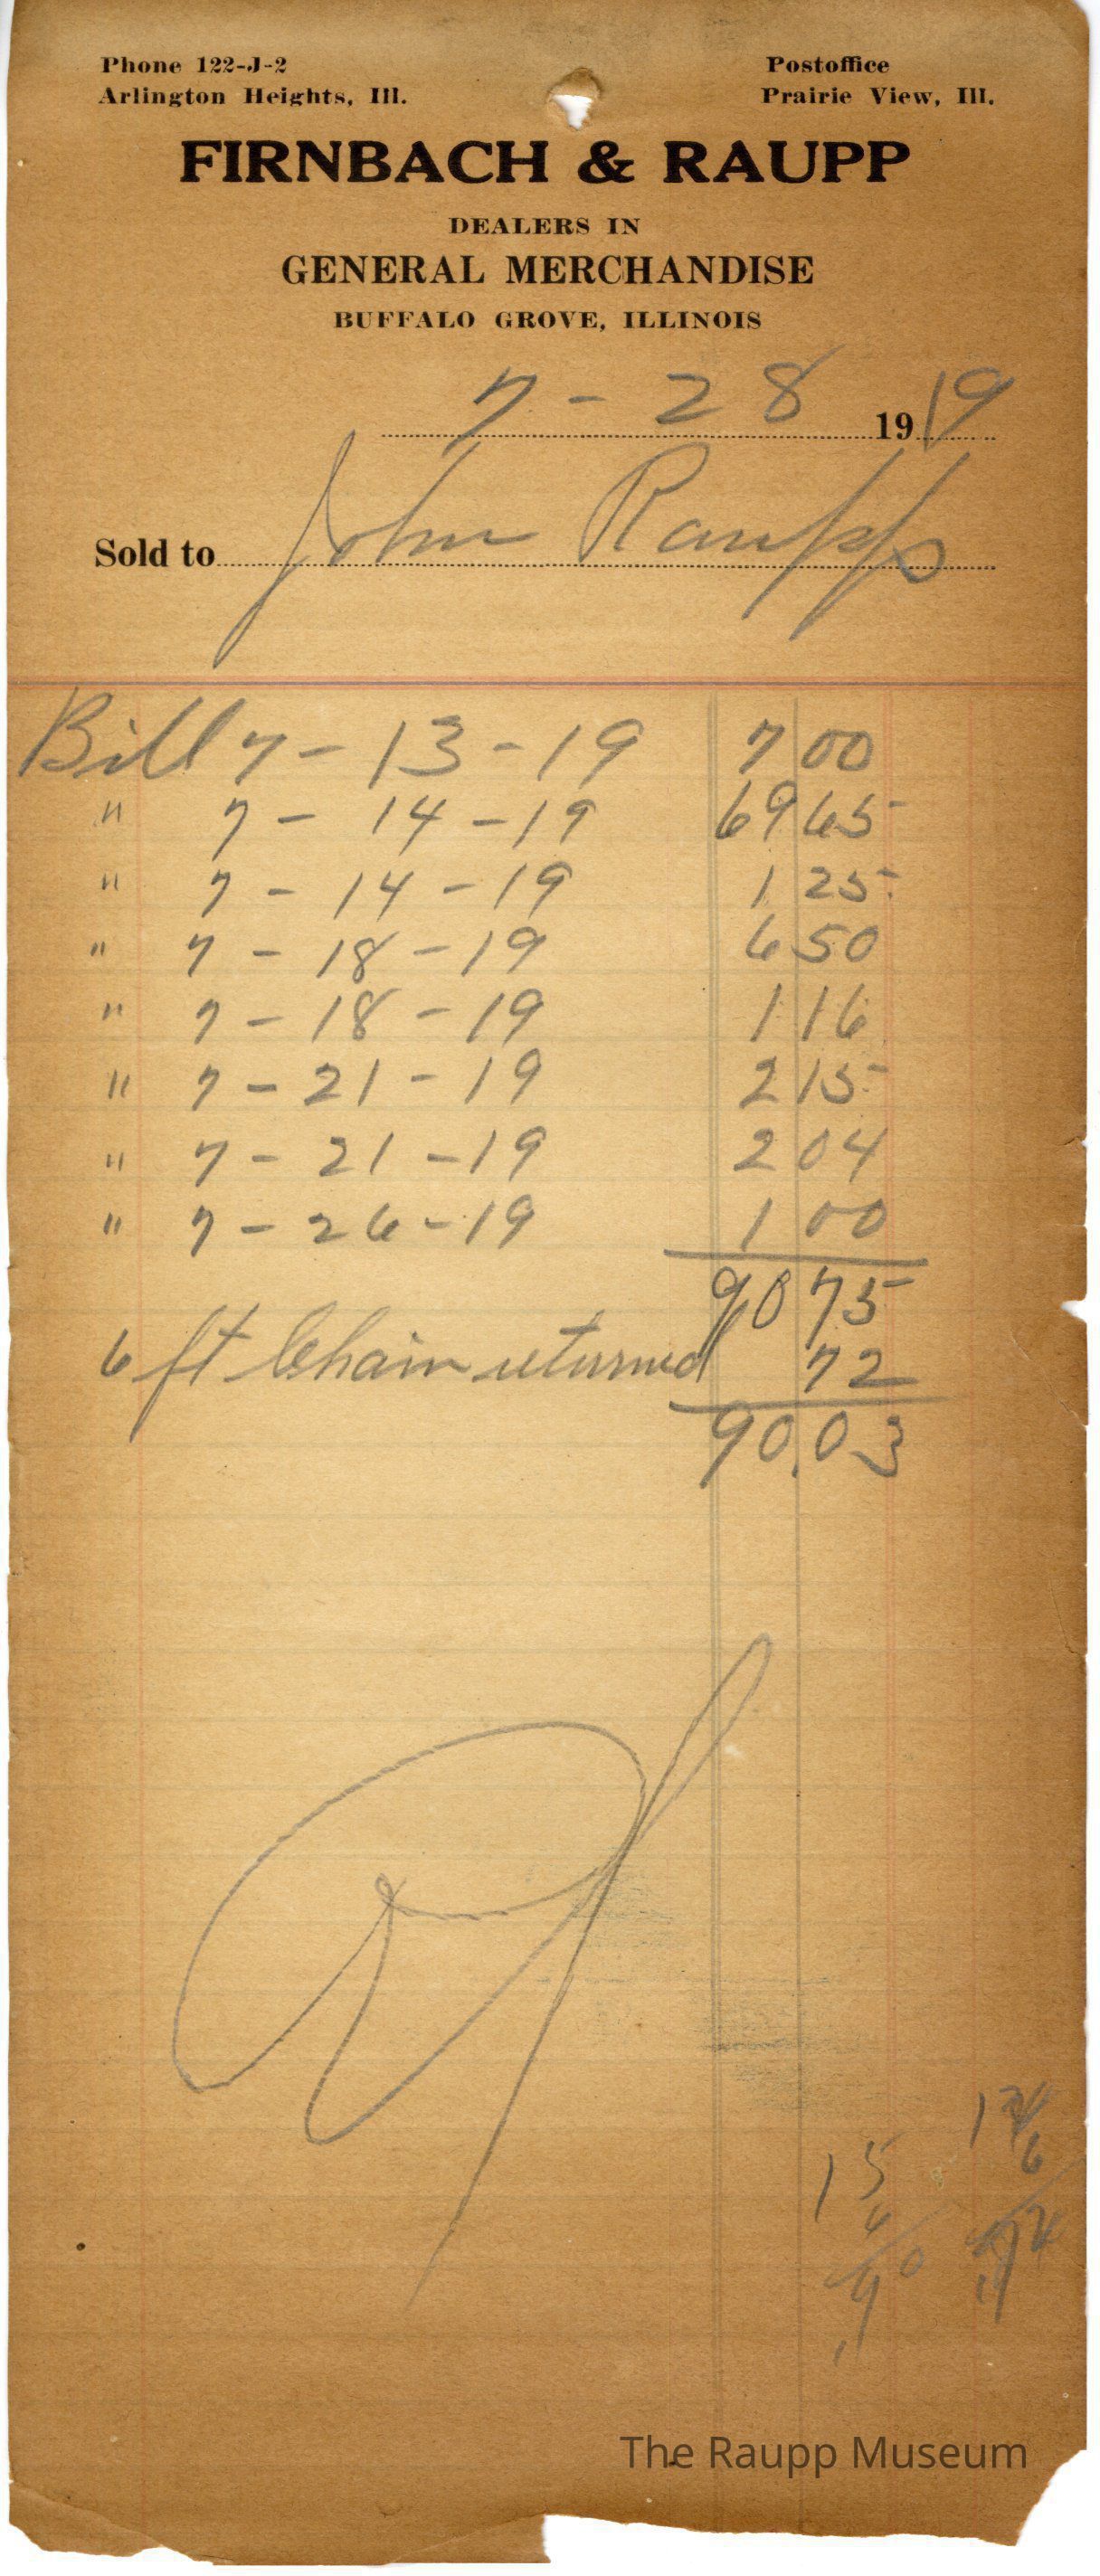 Phone 122-J-2
Arlington Heights, Ill.
Postoffice
Prairie View, Ill.
FIRNBACH & RAUPP
DEALERS IN
GENERAL MERCHANDISE
BUFFALO GROVE, ILLINOIS
7 - 28 1919
Sold to John Raupp
Bill 7 - 13 - 19 7 00
" 7 - 14 - 19 69 65
" 7 - 14 - 19 1 25
" 7 - 18 - 19 6 50
" 7 - 18 - 19 1 16
" 7 - 21 - 19 2 15
" 7 - 21 - 19 2 04
" 7 - 26 - 19 1 00
90 75
6 ft Chain returned 72
90.03
15
6
90
The Raupp Museum